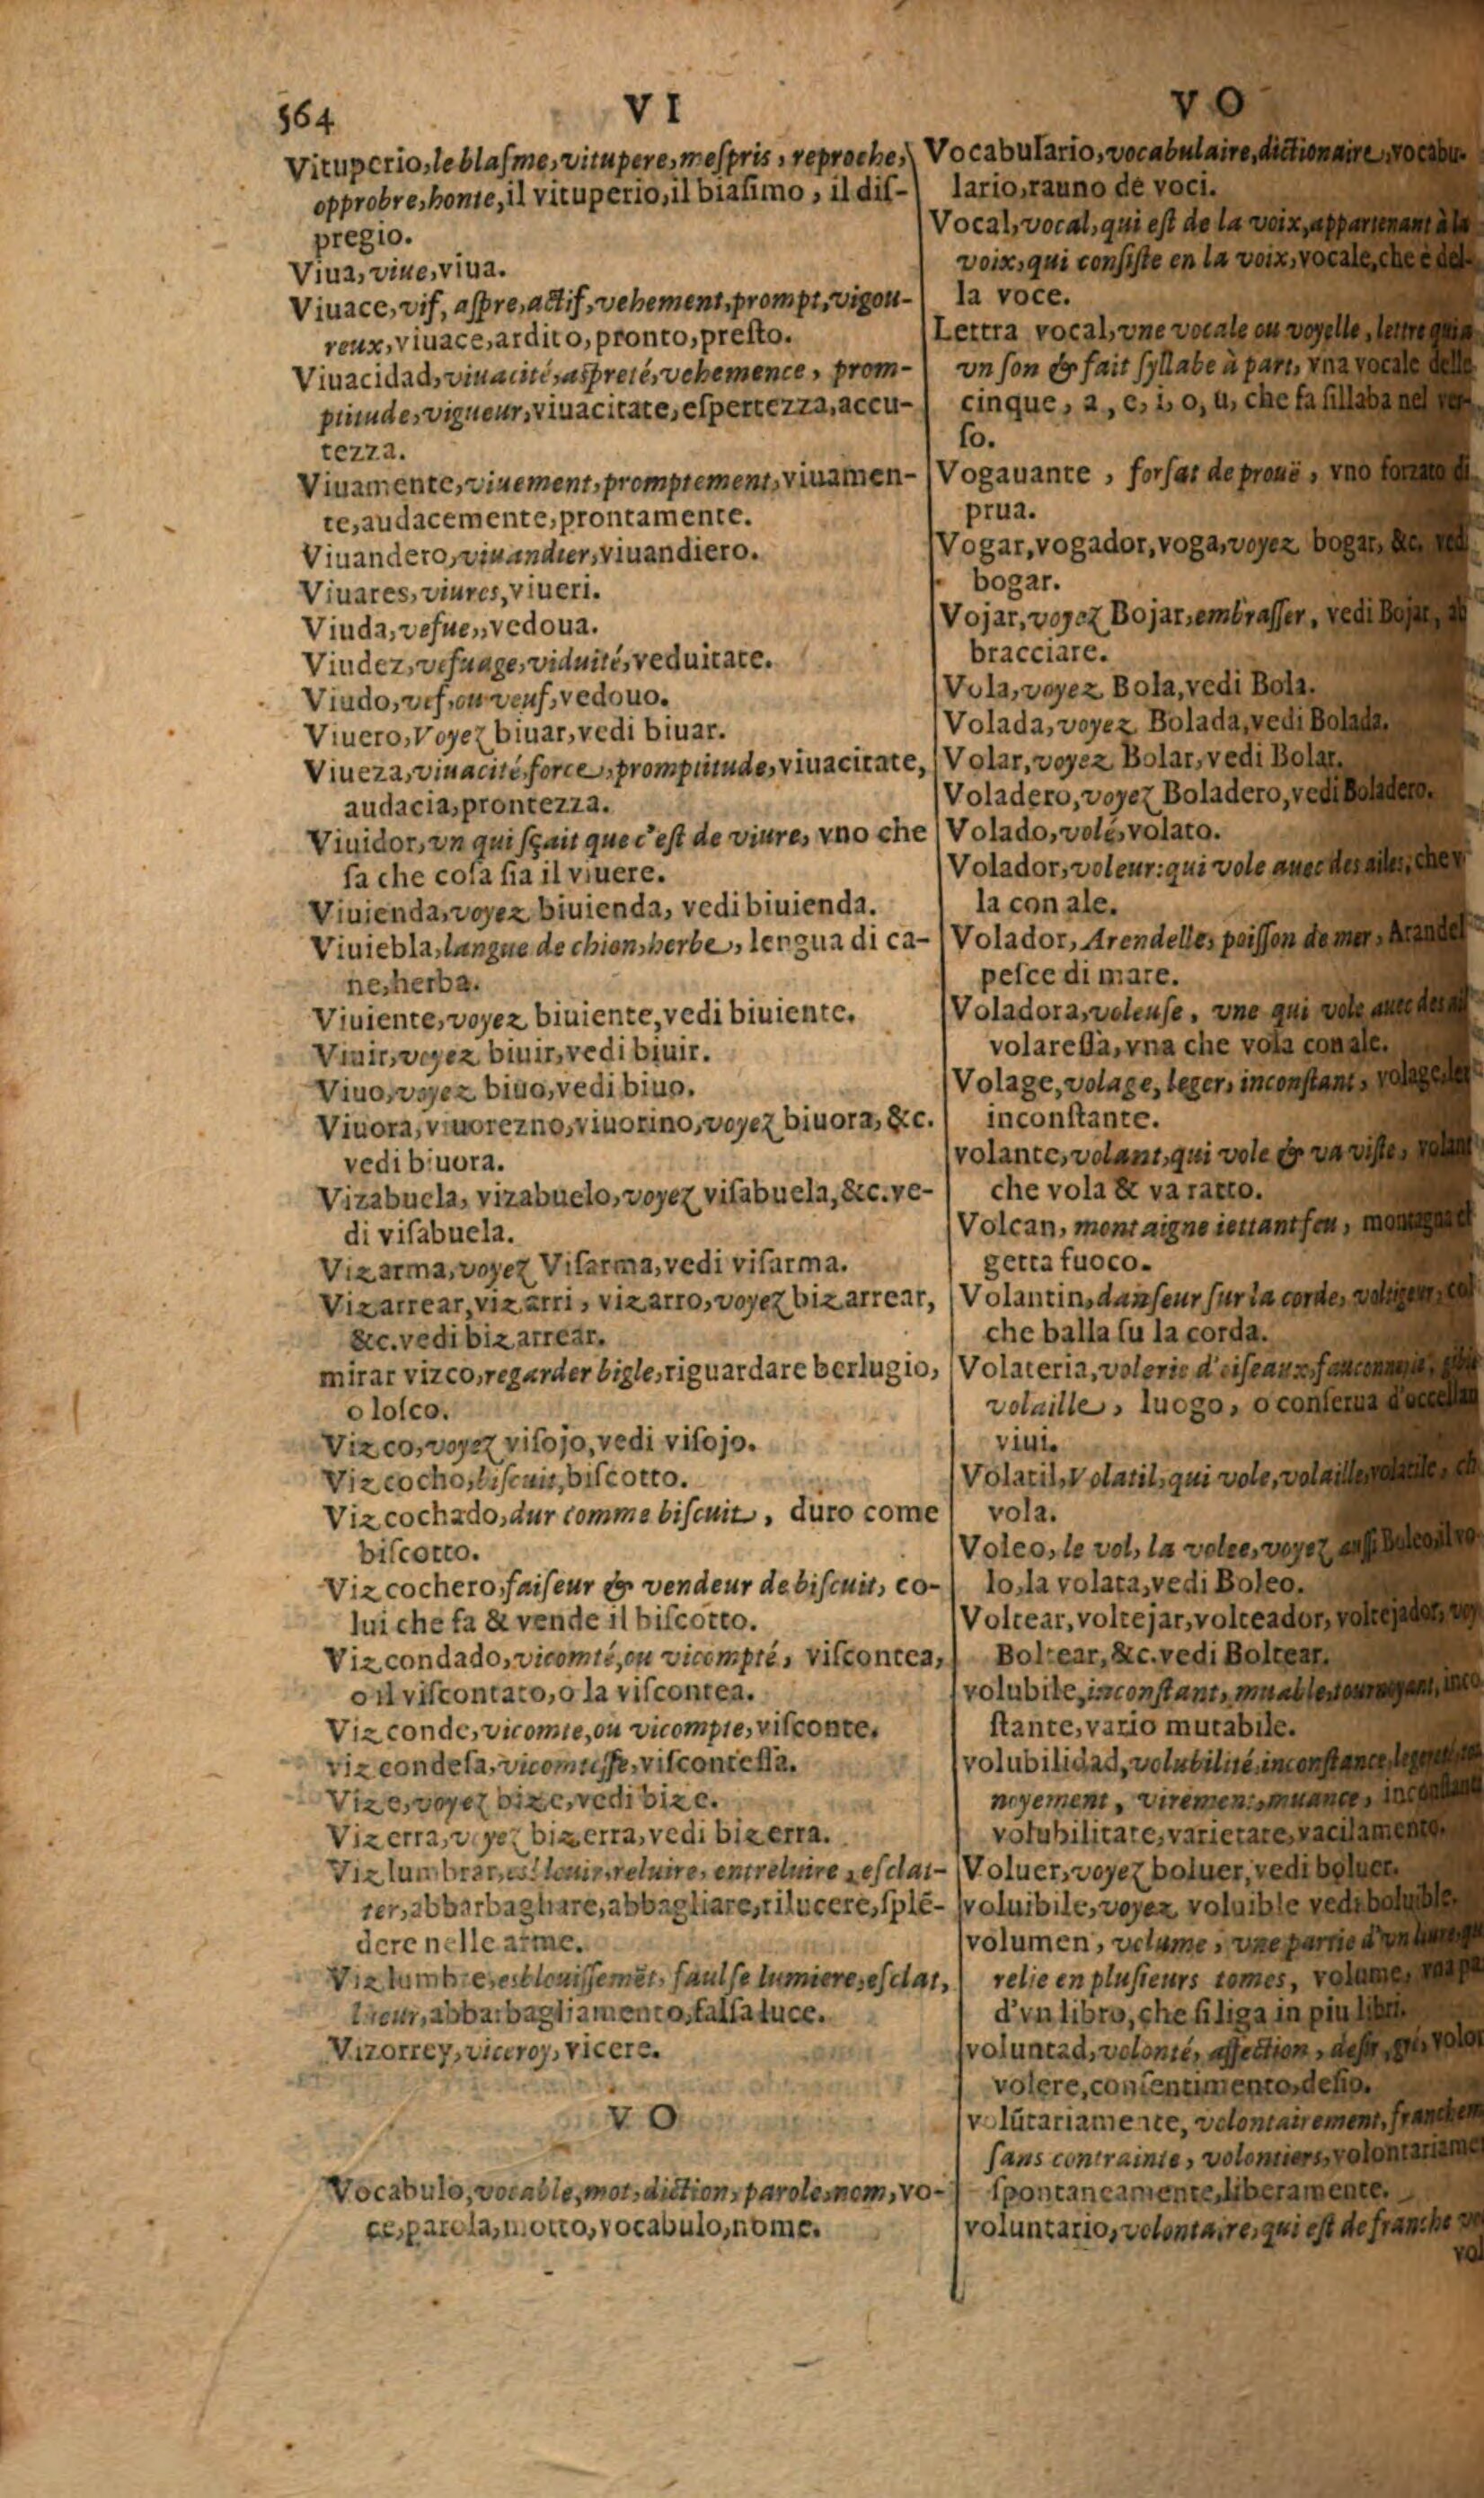 564
VI
VO
Vituperio, le blaſme, vitupere, meſpris, reproche,
opprobre, honte, il vituperio, il biaſimo, il diſ-
pregio.
Viua, viue, viua.
Viuace, vif, aſpre, actif, vehement, prompt, vigou-
reux, viuace, ardito, pronto, preſto.
Viuacidad, viuacité, aſpreté, vehemence, prom-
ptitude, vigueur, viuacitate, eſpertezza, accu-
tezza.
Viuamente, viuement, promptement, viuamen-
te, audacemente, prontamente.
Viuandero, viuandier, viuandiero.
Viuares, viures, viueri.
Viuda, vefue,, vedoua.
Viudez, vefuage, viduité, veduitate.
Viudo, vef, ou veuf, vedouo.
Viuero, Voyez biuar, vedi biuar.
Viueza, viuacité, force, promptitude, viuacitate,
audacia, prontezza.
Viuidor, vn qui ſçait que c'eſt de viure, vno che
ſa che coſa ſia il viuere.
Viuienda, voyez biuienda, vedi biuienda.
Viuiebla, langue de chien, herbe, lengua di ca-
ne, herba.
Viuiente, voyez biuiente, vedi biuiente.
Viuir, voyez biuir, vedi biuir.
Viuo, voyez biuo, vedi biuo.
Viuora, viuorezno, viuorino, voyez biuora, &c.
vedi biuora.
Vizabuela, vizabuelo, voyez viſabuela, &c. ve-
di viſabuela.
Vizarma, voyez Viſarma, vedi viſarma.
Vizarrear, vizarri, vizarro, voyez bizarrear,
&c. vedi bizarrear.
mirar vizco, regarder bigle, riguardare berlugio,
o loſco.
Vizco, voyez viſojo, vedi viſojo.
Vizcocho, biſcuit, biſcotto.
Vizcochado, dur comme biſcuit, duro come
biſcotto.
Vizcochero, faiſeur & vendeur de biſcuit, co-
lui che fa & vende il biſcotto.
Vizcondado, vicomté, ou vicompté, viſcontea,
o il viſcontato, o la viſcontea.
Vizconde, vicomte, ou vicompte, viſconte.
vizcondeſa, vicomteſſe, viſconteſſa.
Vize, voyez bize, vedi bize.
Vizerra, voyez bizerra, vedi bizerra.
Vizlumbrar, esblouir, reluire, entreluire, eſclat-
ter, abbarbagliare, abbagliare, rilucere, ſplē-
dere nelle arme.
Vizlumbre, esblouiſſemēt, faulſe lumiere, eſclat,
lueur, abbarbagliamento, falſa luce.
Vizorrey, viceroy, vicere.
VO
Vocabulo, vocable, mot, diction, parole, nom, vo-
ce, parola, motto, vocabulo, nome.
Vocabulario, vocabulaire, dictionaire, vocabu-
lario, rauno de voci.
Vocal, vocal, qui eſt de la voix, appartenant à la
voix, qui conſiſte en la voix, vocale, che è del-
la voce.
Lettra vocal, vne vocale ou voyelle, lettre qui a
vn ſon & fait ſyllabe à part, vna vocale delle
cinque, a, e, i, o, u, che fa ſillaba nel ver-
ſo.
Vogauante, forſat de prouë, vno forzato di
prua.
Vogar, vogador, voga, voyez bogar, &c. vedi
bogar.
Vojar, voyez Bojar, embraſſer, vedi Bojar, ab
bracciare.
Vola, voyez Bola, vedi Bola.
Volada, voyez Bolada, vedi Bolada.
Volar, voyez Bolar, vedi Bolar.
Voladero, voyez Boladero, vedi Boladero.
Volado, volé, volato.
Volador, voleur: qui vole auec des ailes, che v
la con ale.
Volador, Arendelle, poiſſon de mer, Arandel
peſce di mare.
Voladora, voleuſe, vne qui vole auec des ail
volareſſa, vna che vola con ale.
Volage, volage, leger, inconſtant, volage, leg
inconſtante.
volante, volant, qui vole & va viſte, volant
che vola & va ratto.
Volcan, montaigne iettant feu, montagna ch
getta fuoco.
Volantin, danſeur ſur la corde, voltigeur, col
che balla ſu la corda.
Volateria, volerie d'oiſeaux, fauconnerie,
volaille, luogo, o conſerua d'occellan
viui.
Volatil, Volatil, qui vole, volaille, volatile, ch
vola.
Voleo, le vol, la volee, voyez auſſi Boleo, il vo-
lo, la volata, vedi Boleo.
Voltear, voltejar, volteador, voltejador, voy
Boltear, &c. vedi Boltear.
volubile, inconſtant, muable, tournoyant, inco
ſtante, vario mutabile.
volubilidad, volubilité, inconſtance,
noyement, virement, muance, inconſtanti
volubilitate, varietate, vacilamento.
Voluer, voyez boluer, vedi boluer.
voluibile, voyez voluible vedi boluible.
volumen, volume, vne partie d'vn liure, qui
relie en pluſieurs tomes, volume, vna pa
d'vn libro, che ſi liga in piu libri.
voluntad, volonté, affection, deſir, gré, volon
volere, conſentimento, deſio.
volūtariamente, volontairement, franchem
ſans contrainte, volontiers, volontariame
ſpontaneamente, liberamente.
voluntario, volontaire, qui eſt de franche vo
vol